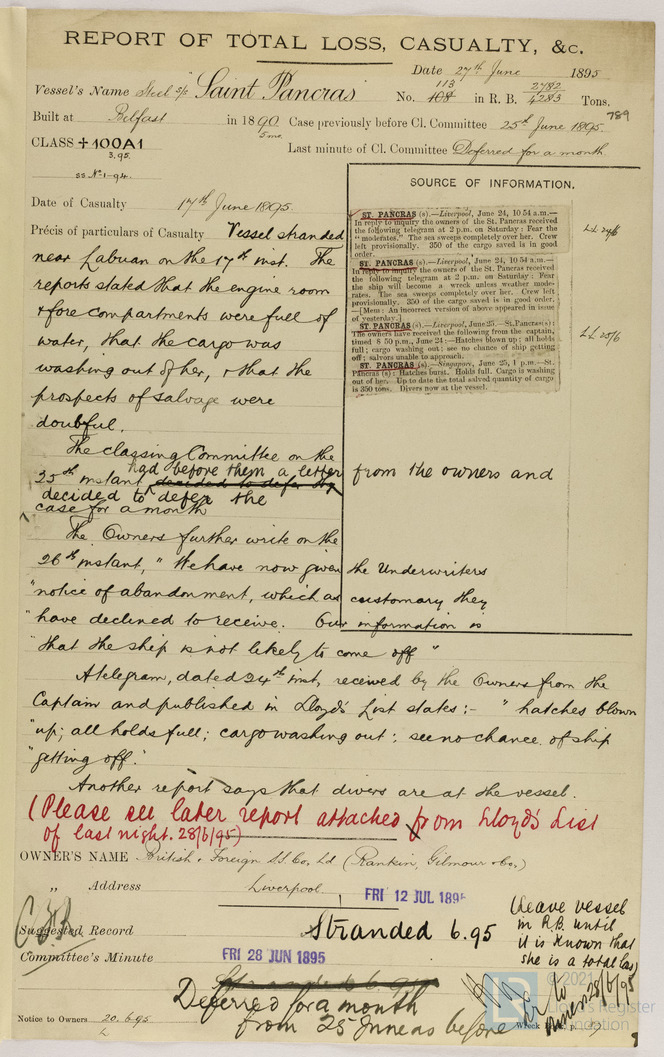 REPORT OF TOTAL LOSS, CASUALTY, &c.
Date 27th June 1895
Vessel's Name Steel s/s Saint Pancras
No. 113 108 in R. B. 2782 4283 Tons,
789
Built at Belfast in 1890 5mo
Case previously before Cl. Committee 25th June 1895.
CLASS +100A1
3.95.
Last minute of Cl. Committee Deferred for a month
SS No 1-94.
SOURCE OF INFORMATION.
Date of Casualty 17th June 1895.
Précis of particulars of Casualty Vessel stranded
near Labuan on the 17th inst. The
reports stated that the engine room
& fore compartments were full of
water, that the cargo was
washing out of her, & that the
prospects of salvage were
doubtful.
ST. PANCRAS (s).—Liverpool, June 24, 10 54 a.m.—
In reply to inquiry the owners of the St. Pancras received
the following telegram at 2 p.m. on Saturday: Fear the
" moderates." The sea sweeps completely over her. Crew
left provisionally. 350 of the cargo saved is in good
order.
ST. PANCRAS (s).—Liverpool, June 24, 10 54 a.m.—
In reply to inquiry the owners of the St. Pancras received
the following telegram at 2 p.m. on Saturday: Fear
the ship will become a wreck unless weather mode-
rates. The sea sweeps completely over her. Crew left
provisionally. 350 of the cargo saved is in good order.
—[Mem: An incorrect version of above appeared in issue
of yesterday.]
ST. PANCRAS (s).—Liverpool, June 25.—St. Pancras(s):
The owners have received the following from the captain,
timed 8 50 p.m., June 24:—Hatches blown up; all holds
full; cargo washing out; see no chance of ship getting
off; salvors unable to approach.
ST. PANCRAS (s).—Singapore, June 25, 1 p.m.—St.
Pancras (s): Hatches burst. Holds full. Cargo is washing
out of her. Up to date the total salved quantity of cargo
is 350 tons. Divers now at the vessel.
LL 25/6
The Classing Committee on the
25th instant had before them a letter from the owners and
decided to defer the
case for a month
The Owners further write on the
26th instant, "We have now given the Underwriters
"notice of abandonment, which as customary they
"have declined to receive. Our information is
"that the ship is not likely to come off"
A telegram, dated 24th inst, received by the Owners from the
Captain and published in Lloyd's List states:- "hatches blown
"up; all holds full; cargo washing out; see no chance of ship
"getting off."
Another report says that divers are at the vessel.
(Please see later report attached from Lloyd's List
of last night. 28/6/95)
OWNER'S NAME British & Foreign S.S. Co, Ld (Rankin, Gilmour & Co,)
" Address Liverpool
FRI 12 JUL 1895
Suggested Record Stranded 6.95
Leave vessel
in R.B. until
it is known that
she is a total loss
28/6/95
Committee's Minute FRI 28 JUN 1895
Stranded 6.95
Deferred for a month
from 25 June as before
Notice to Owners 20.6.95
L
Wreck
© 2021
Lloyd's Register
Foundation